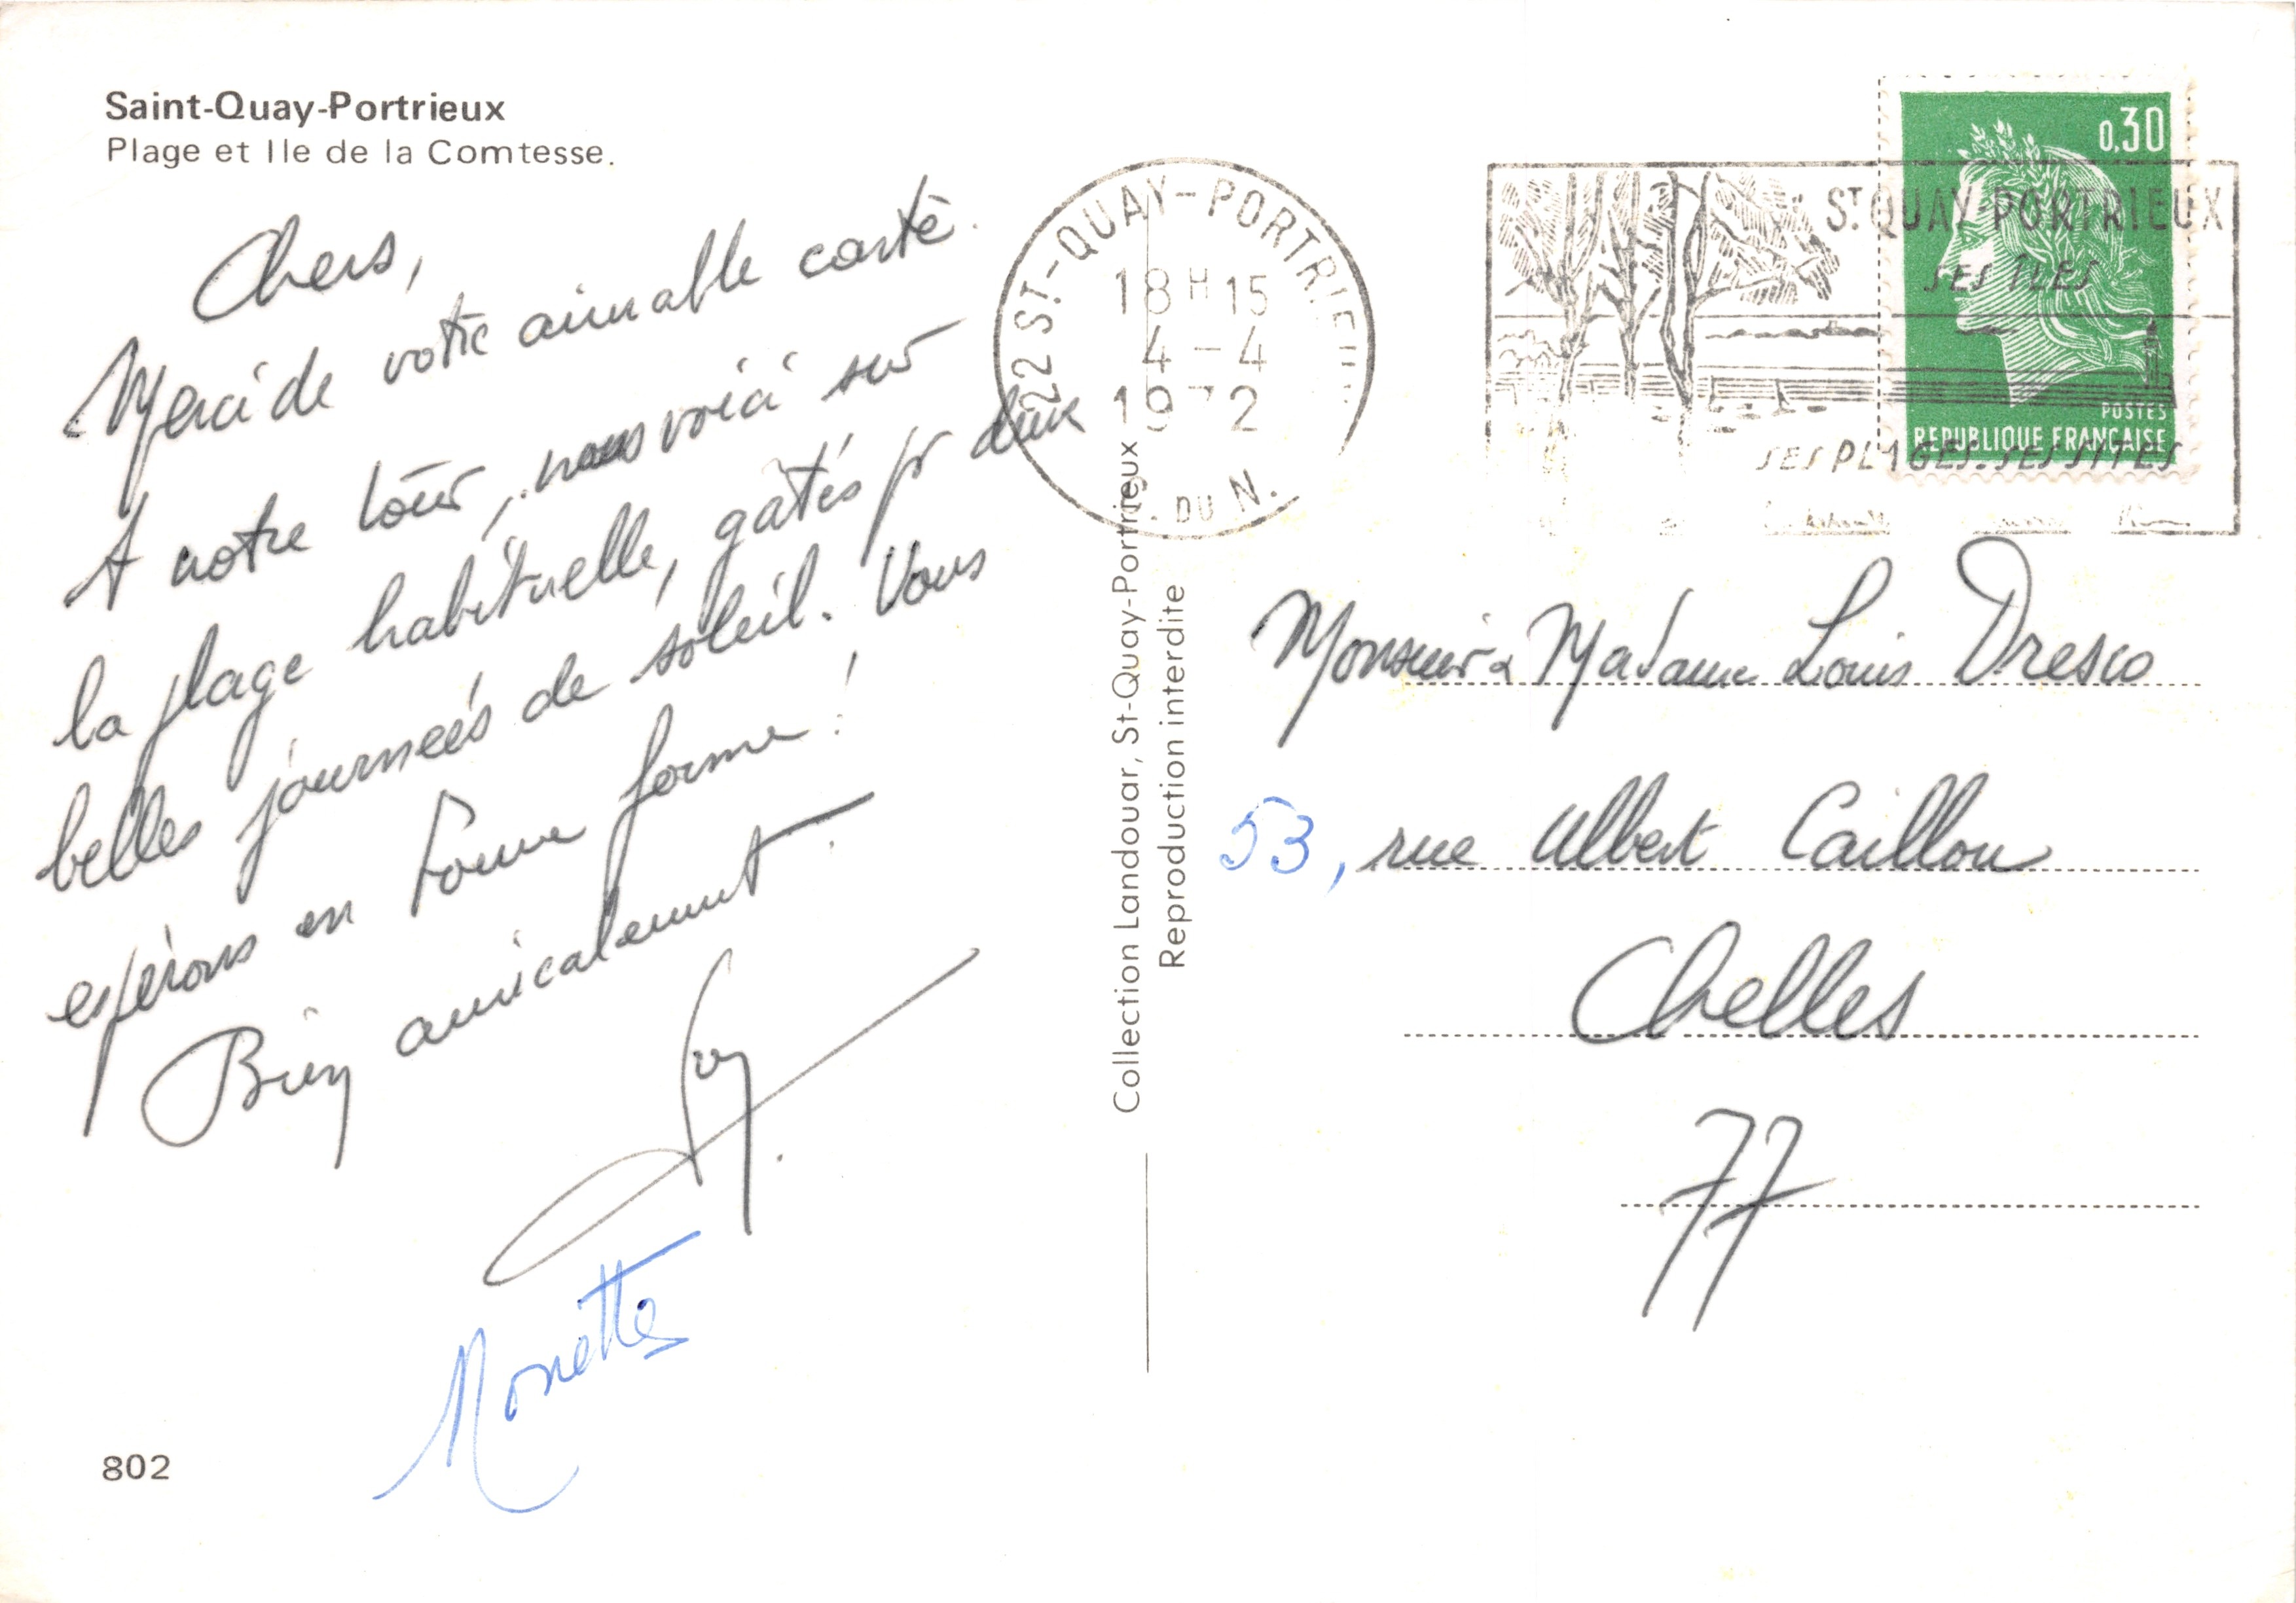 Saint-Quay-Portrieux
Plage et Ile de la Comtesse.
Chers,
Merci de votre aimable carte.
A notre tour, nous voici sur
la plage habituelle, gatés pr deux
belles journées de soleil. Vous
espérons en bonne forme !
Bien amicalement.
Guy.
Monette
802
Collection Landouar, St-Quay-Portrieux
Reproduction interdite
22 ST-QUAY-PORTRIEUX
18 H 15
4-4
1972
DU N.
ST QUAY PORTRIEUX
SES ÎLES
SES PLAGES. SES SITES
0,30
POSTES
REPUBLIQUE FRANÇAISE
Monsieur & Madame Louis Dresco
53, rue Albert Caillou
Chelles
77